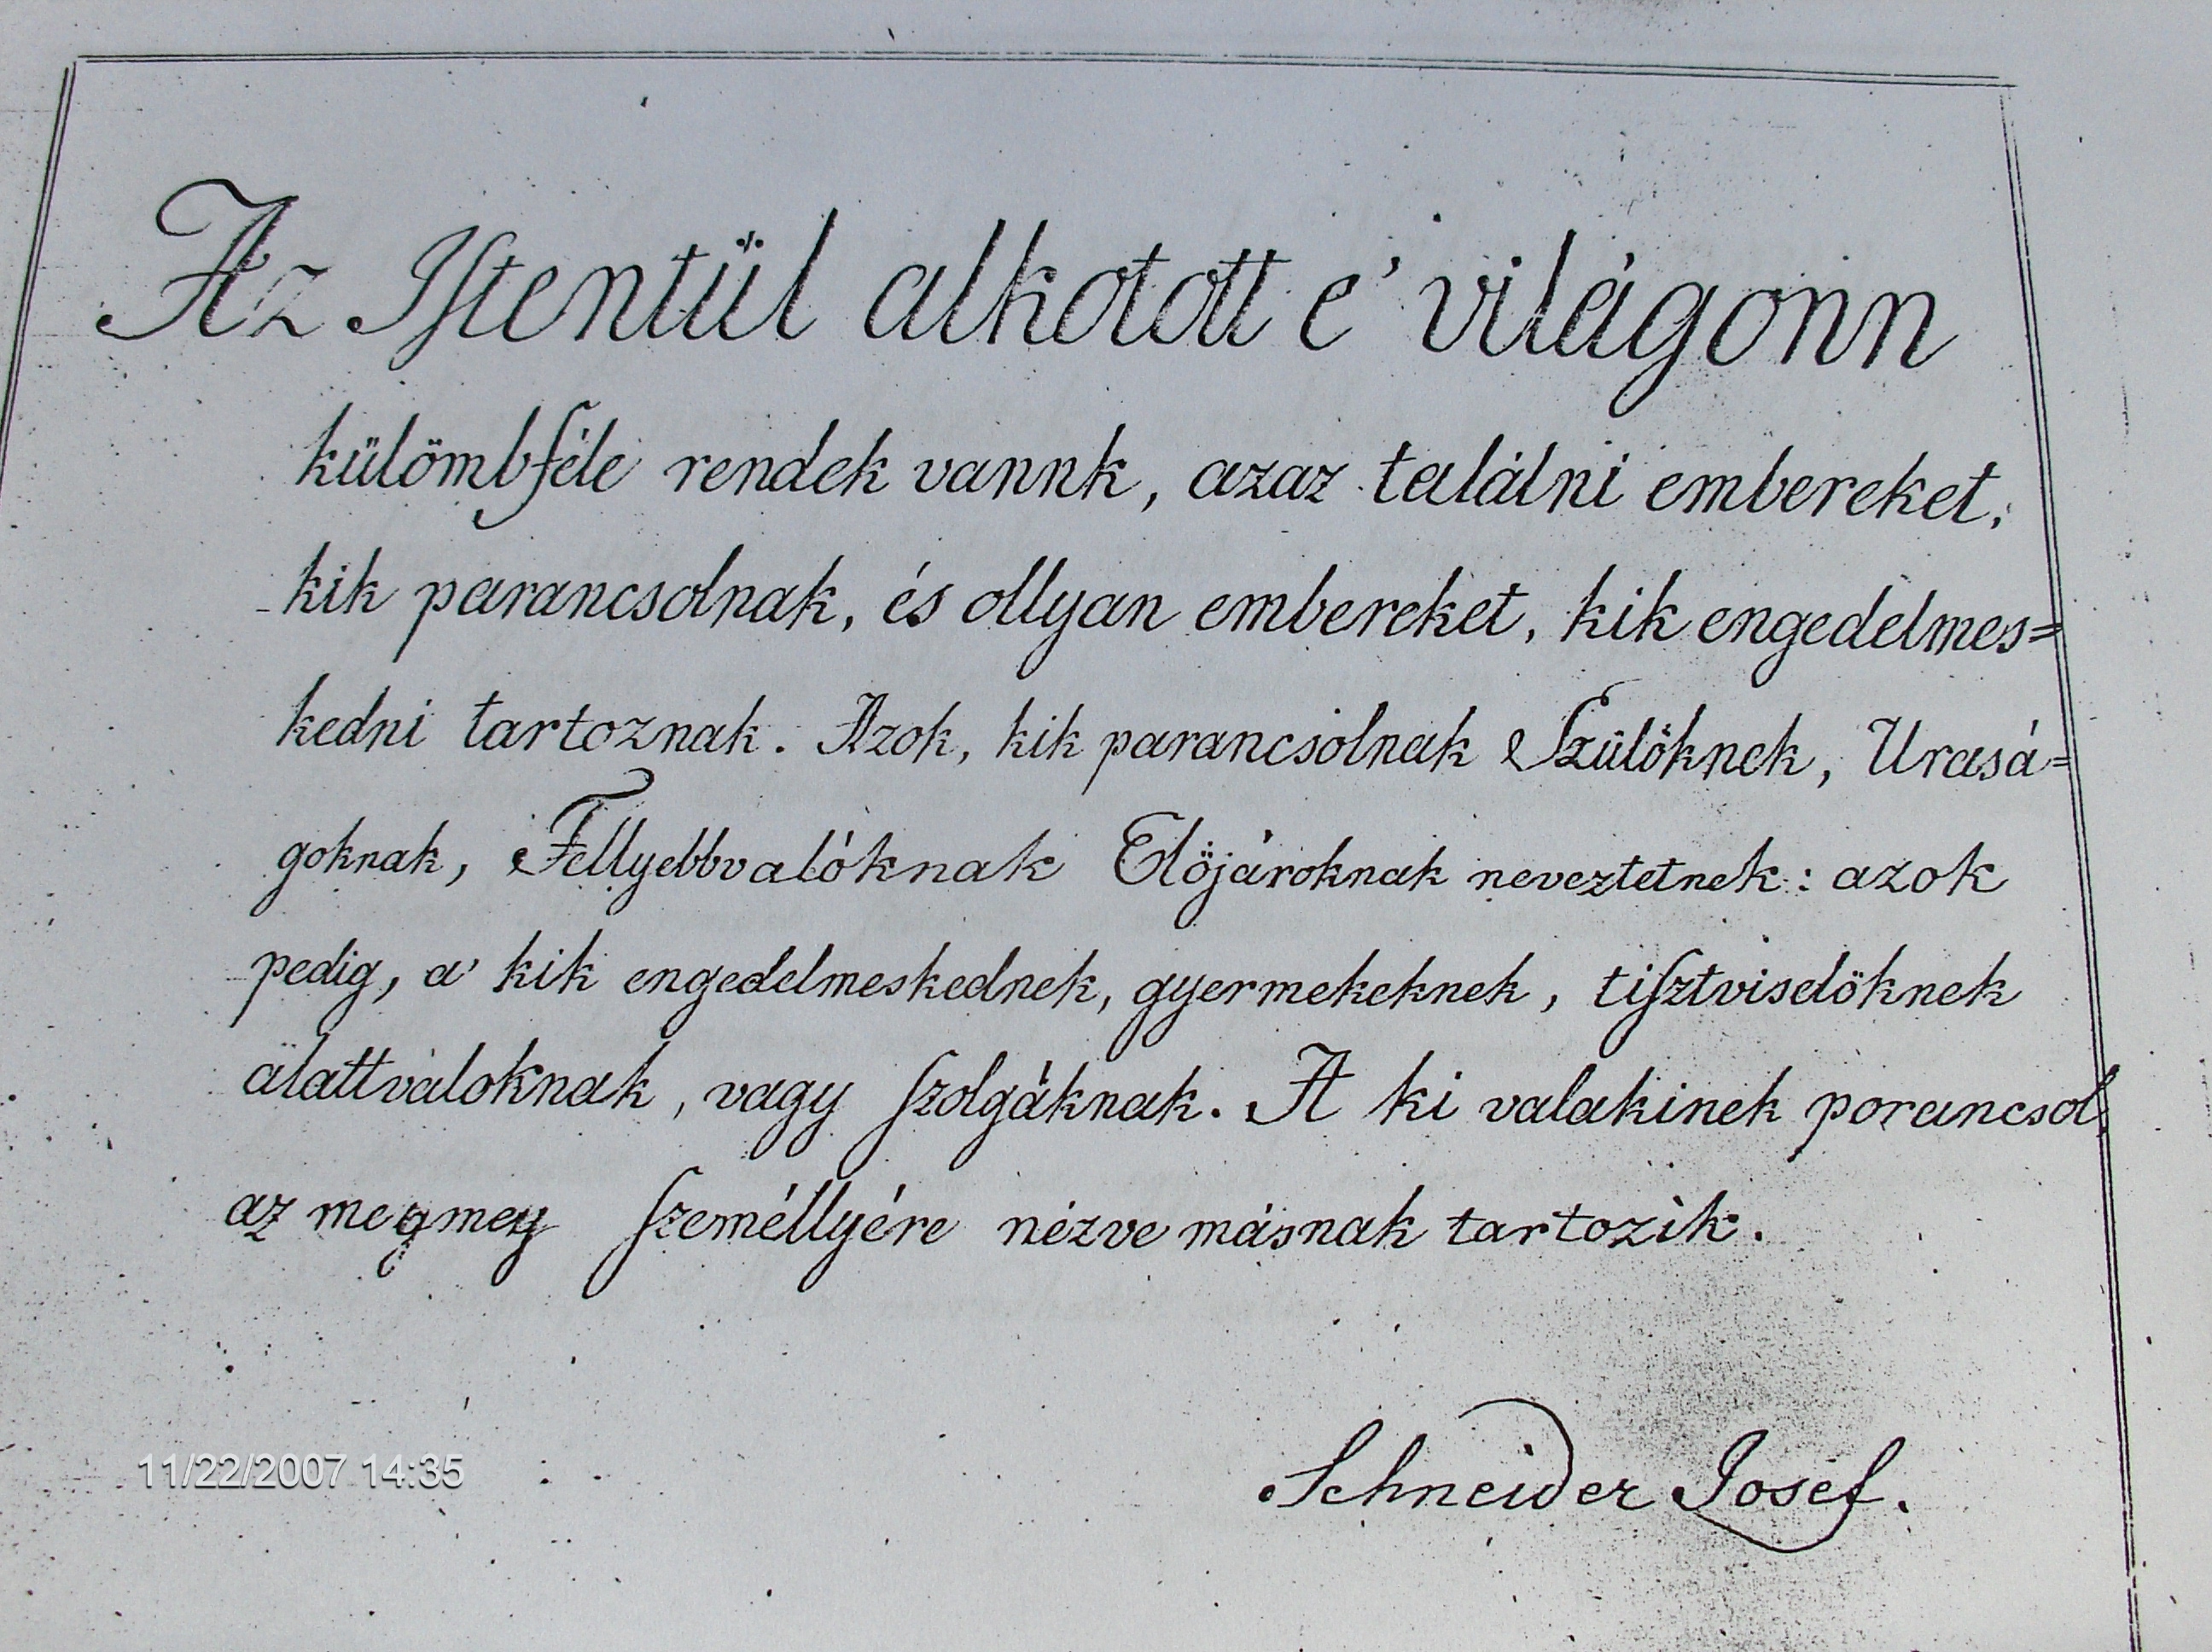 Az Istentül alkotott e' világonn
külömbféle rendek vannk, azaz találni embereket,
kik parancsolnak, és ollyan embereket, kik engedelmes=
kedni tartoznak. Azok, kik parancsolnak Szülöknek, Urasá=
goknak, Fellyebbvalóknak Elöjároknak neveztetnek: azok
pedig, a' kik engedelmeskednek, gyermekeknek, tisztviselöknek
alattvaloknak, vagy szolgáknak. A ki valakinek porancsol,
az megmeg személlyére nézve másnak tartozik.
Schneider Josef.
11/22/2007 14:35